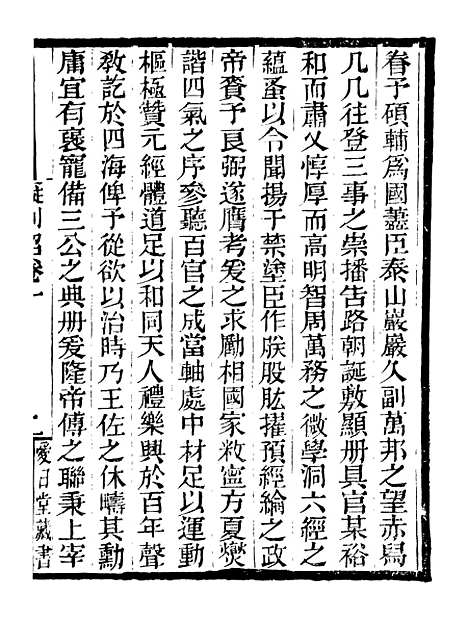 眷予碩輔為國藎臣泰山巖巖久副萬邦之望赤舄
几几往登三事之崇播告路朝誕敷顯册具官某裕
和而肅乂惇厚而高明智周萬務之微學洞六經之
蘊蚤以令聞揚于禁塗臣作朕股肱擢預經綸之政
帝賚予良弼遂膺考爰之求勵相國家敉寧方夏爕
諧四氣之序參聽百官之成當軸處中材足以運動
樞極贊元經體道足以和同天人禮樂興於百年聲
敎訖於四海俾予從欲以治時乃王佐之休疇其勳
庸宜有褒寵備三公之典册爰隆帝傅之聯秉上宰
卷一
愛日堂藏書